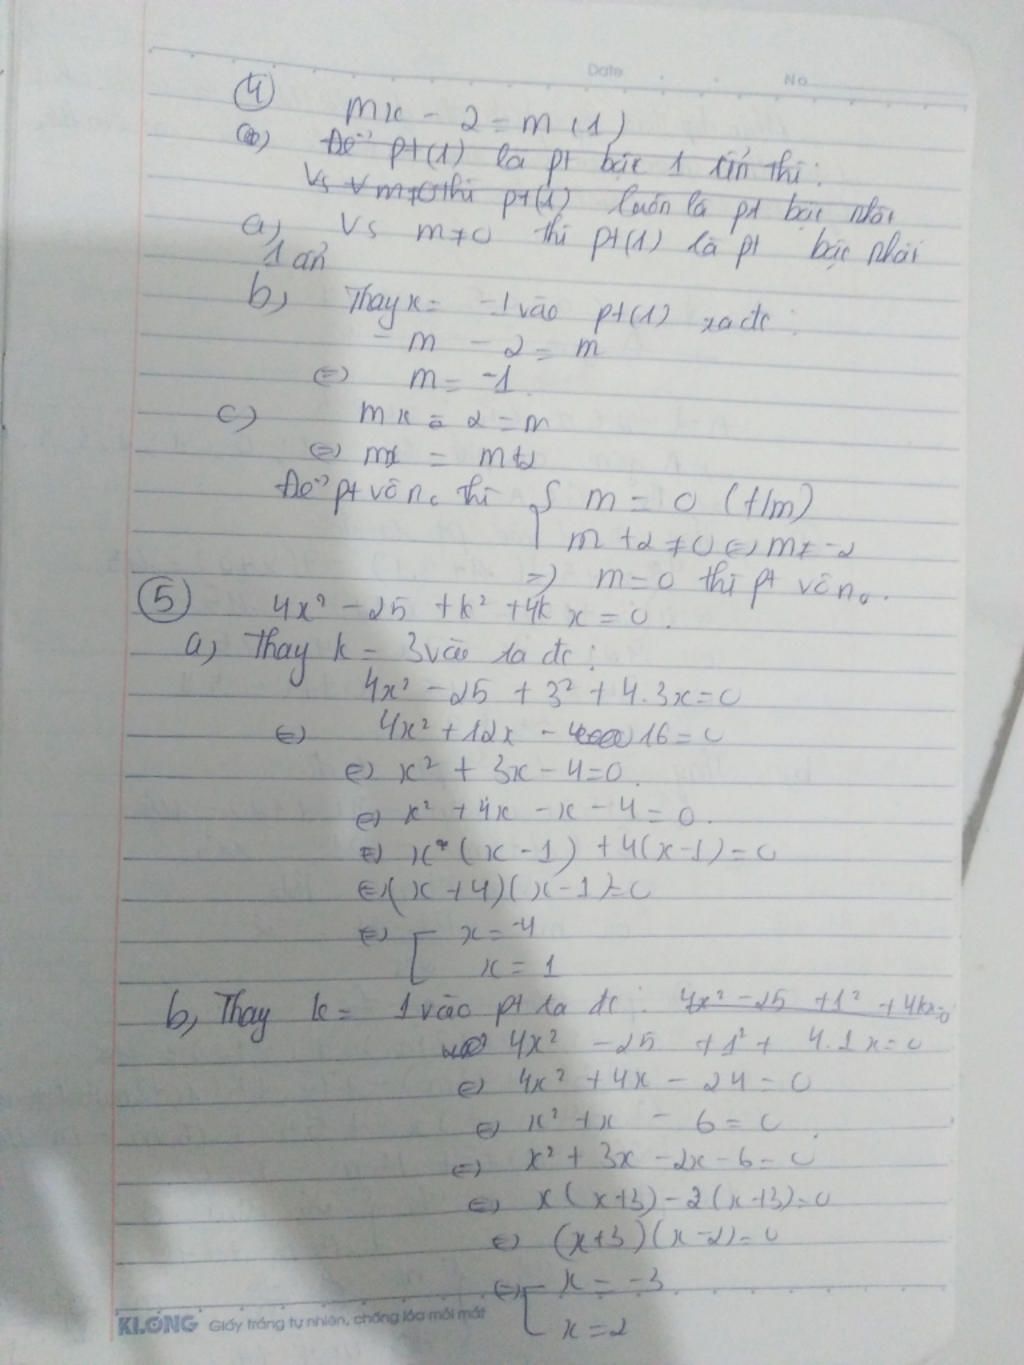 Date No
④ mx - 2 = m (1)
Để pt(1) là pt bậc 1 ẩn thì:
Vs ∀ m≠0 thì pt(1) luôn là pt bậc nhất
a, Vs m≠0 thì pt(1) là pt bậc nhất
1 ẩn
b, Thay x = -1 vào pt(1) ta đc:
- m - 2 = m
⇔ m = -1.
c) mx - 2 = m
⇔ mx = m+2
Để pt vô n₀ thì { m = 0 (t/m)
m + 2 ≠ 0 ⇔ m ≠ -2
⇒ m=0 thì pt vô n₀.
⑤ 4x² - 25 + k² + 4k x = 0.
a, Thay k = 3 vào ta đc:
4x² - 25 + 3² + 4.3x = 0
⇔ 4x² + 12x - 16 = 0
⇔ x² + 3x - 4 = 0.
⇔ x² + 4x - x - 4 = 0.
⇔ x (x - 1) + 4(x-1) = 0
⇔ (x+4)(x-1) = 0
⇔ [ x = -4
x = 1
b, Thay k = 1 vào pt ta đc: 4x² - 25 + 1² + 4kx=0
4x² - 25 + 1² + 4.1x = 0
⇔ 4x² + 4x - 24 = 0
⇔ x² + x - 6 = 0.
⇔ x² + 3x - 2x - 6 = 0
⇔ x(x+3) - 2(x+3) = 0
⇔ (x+3)(x-2) = 0
⇔ [ x = -3
x = 2
KLONG Giấy trắng tự nhiên, chống lóa mỏi mắt